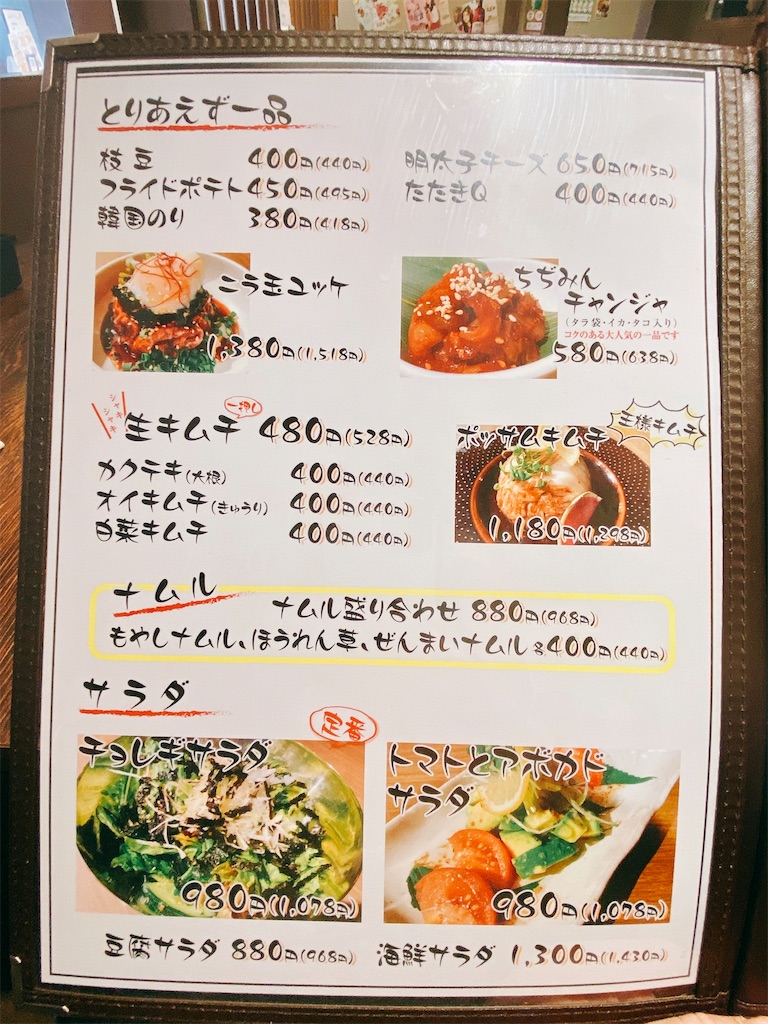 とりあえず一品
枝豆 400円(440円)
フライドポテト 450円(495円)
韓国のり 380円(418円)
明太子チーズ 650円(715円)
たたきQ 400円(440円)
ニラ玉ユッケ
1,380円(1,518円)
ちぢみん
チャンジャ
(タラ袋・イカ・タコ入り)
コクのある大人気の一品です
580円(638円)
シャキ
シャキ
一押し
生キムチ 480円(528円)
カクテキ(大根) 400円(440円)
オイキムチ(きゅうり) 400円(440円)
白菜キムチ 400円(440円)
王様キムチ
ポッサムキムチ
1,180円(1,298円)
ナムル
ナムル盛り合わせ 880円(968円)
もやしナムル、ほうれん草、ぜんまいナムル 各400円(440円)
サラダ
定番
チョレギサラダ
980円(1,078円)
トマトとアボカド
サラダ
980円(1,078円)
豆腐サラダ 880円(968円)
海鮮サラダ 1,300円(1,430円)